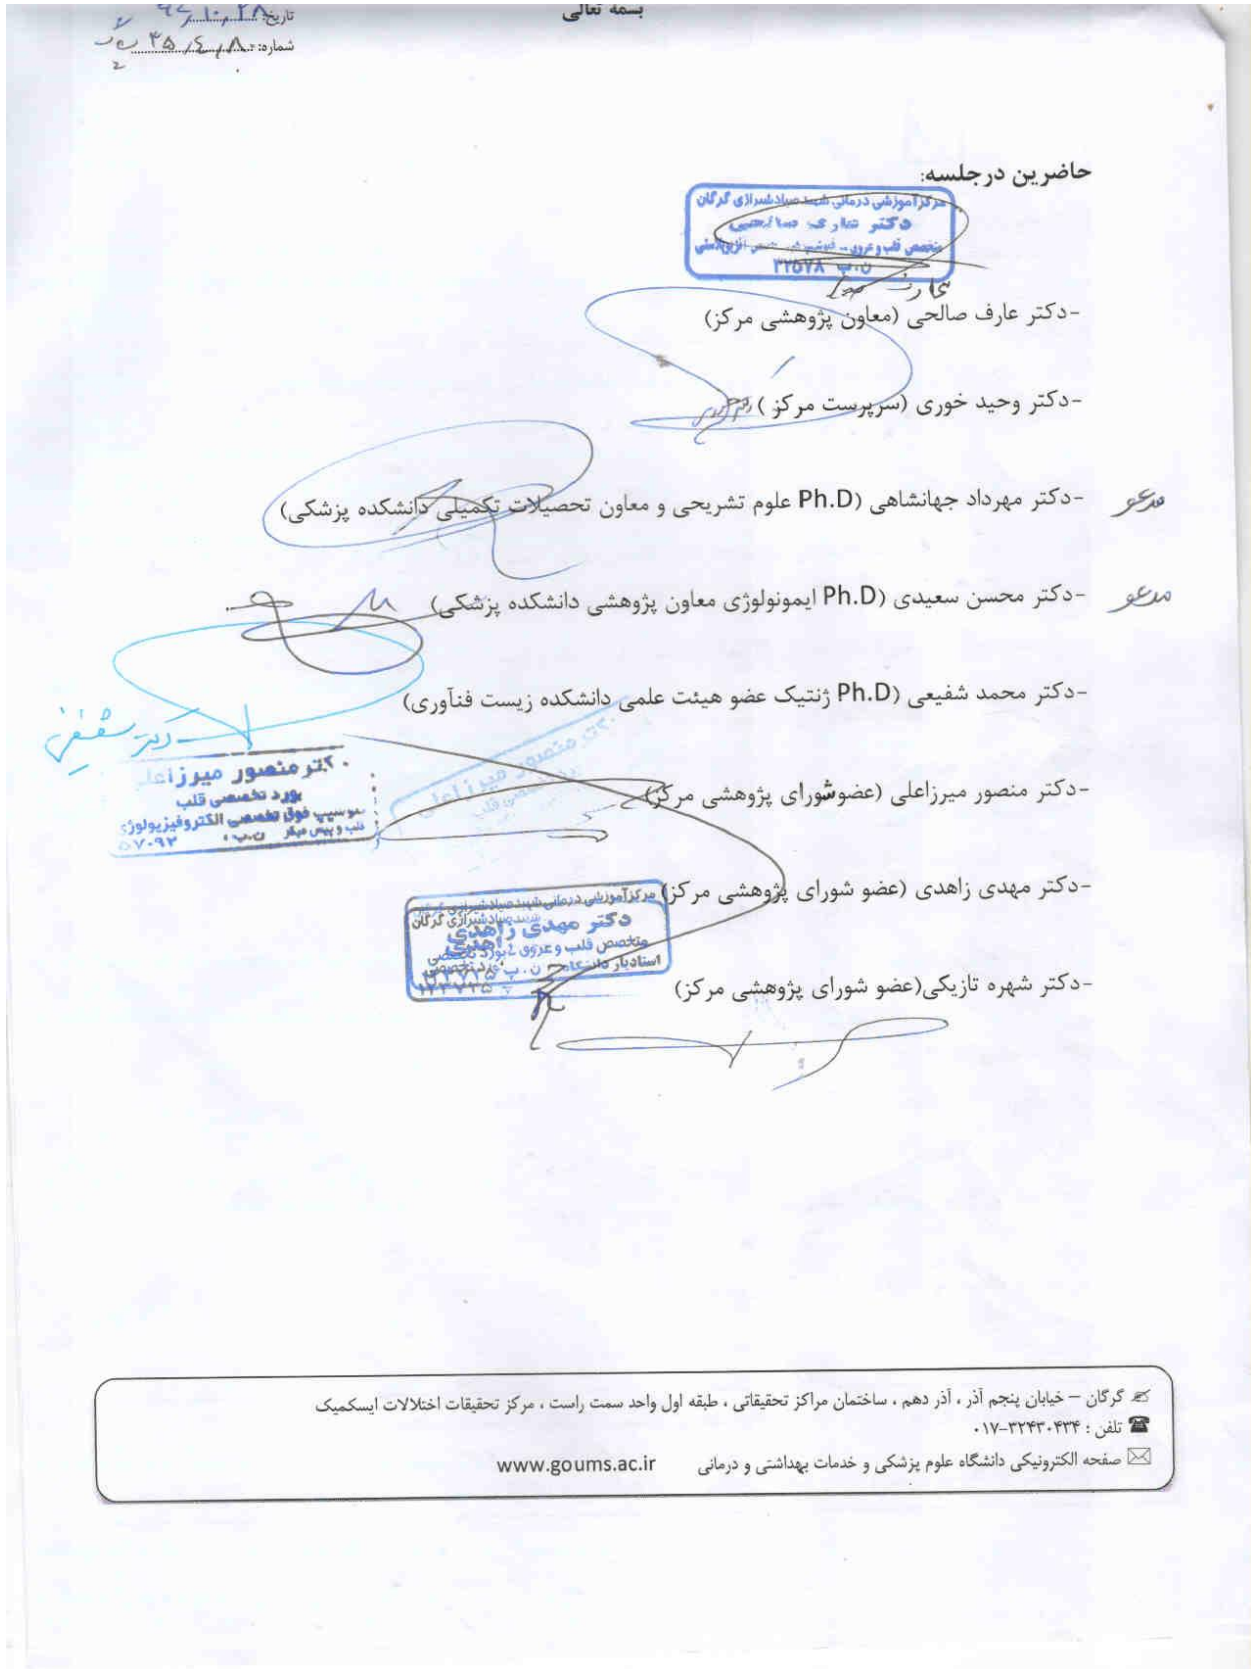 بسمه تعالی
تاریخ:
شماره:
حاضرین در جلسه:
مرکز آموزشی درمانی شهید صیاد شیرازی گرگان
دکتر عارف صالحی
متخصص قلب و عروق
ن.پ ۳۲۵۷۸
-دکتر عارف صالحی (معاون پژوهشی مرکز)
-دکتر وحید خوری (سرپرست مرکز )
-دکتر مهرداد جهانشاهی (Ph.D علوم تشریحی و معاون تحصیلات تکمیلی دانشکده پزشکی)
مدعو
-دکتر محسن سعیدی (Ph.D ایمونولوژی معاون پژوهشی دانشکده پزشکی)
مدعو
-دکتر محمد شفیعی (Ph.D ژنتیک عضو هیئت علمی دانشکده زیست فنآوری)
دکتر شفیعی
دکتر منصور میرزاعلی
بورد تخصصی قلب
فوق تخصصی الکتروفیزیولوژی
-دکتر منصور میرزاعلی (عضوشورای پژوهشی مرکز)
-دکتر مهدی زاهدی (عضو شورای پژوهشی مرکز)
مرکز آموزشی درمانی شهید صیاد شیرازی گرگان
دکتر مهدی زاهدی
متخصص قلب و عروق
-دکتر شهره تازیکی(عضو شورای پژوهشی مرکز)
گرگان – خیابان پنجم آذر ، آذر دهم ، ساختمان مراکز تحقیقاتی ، طبقه اول واحد سمت راست ، مرکز تحقیقات اختلالات ایسکمیک
تلفن : ۳۲۴۳۰۴۳۴-۰۱۷
صفحه الکترونیکی دانشگاه علوم پزشکی و خدمات بهداشتی و درمانی www.goums.ac.ir